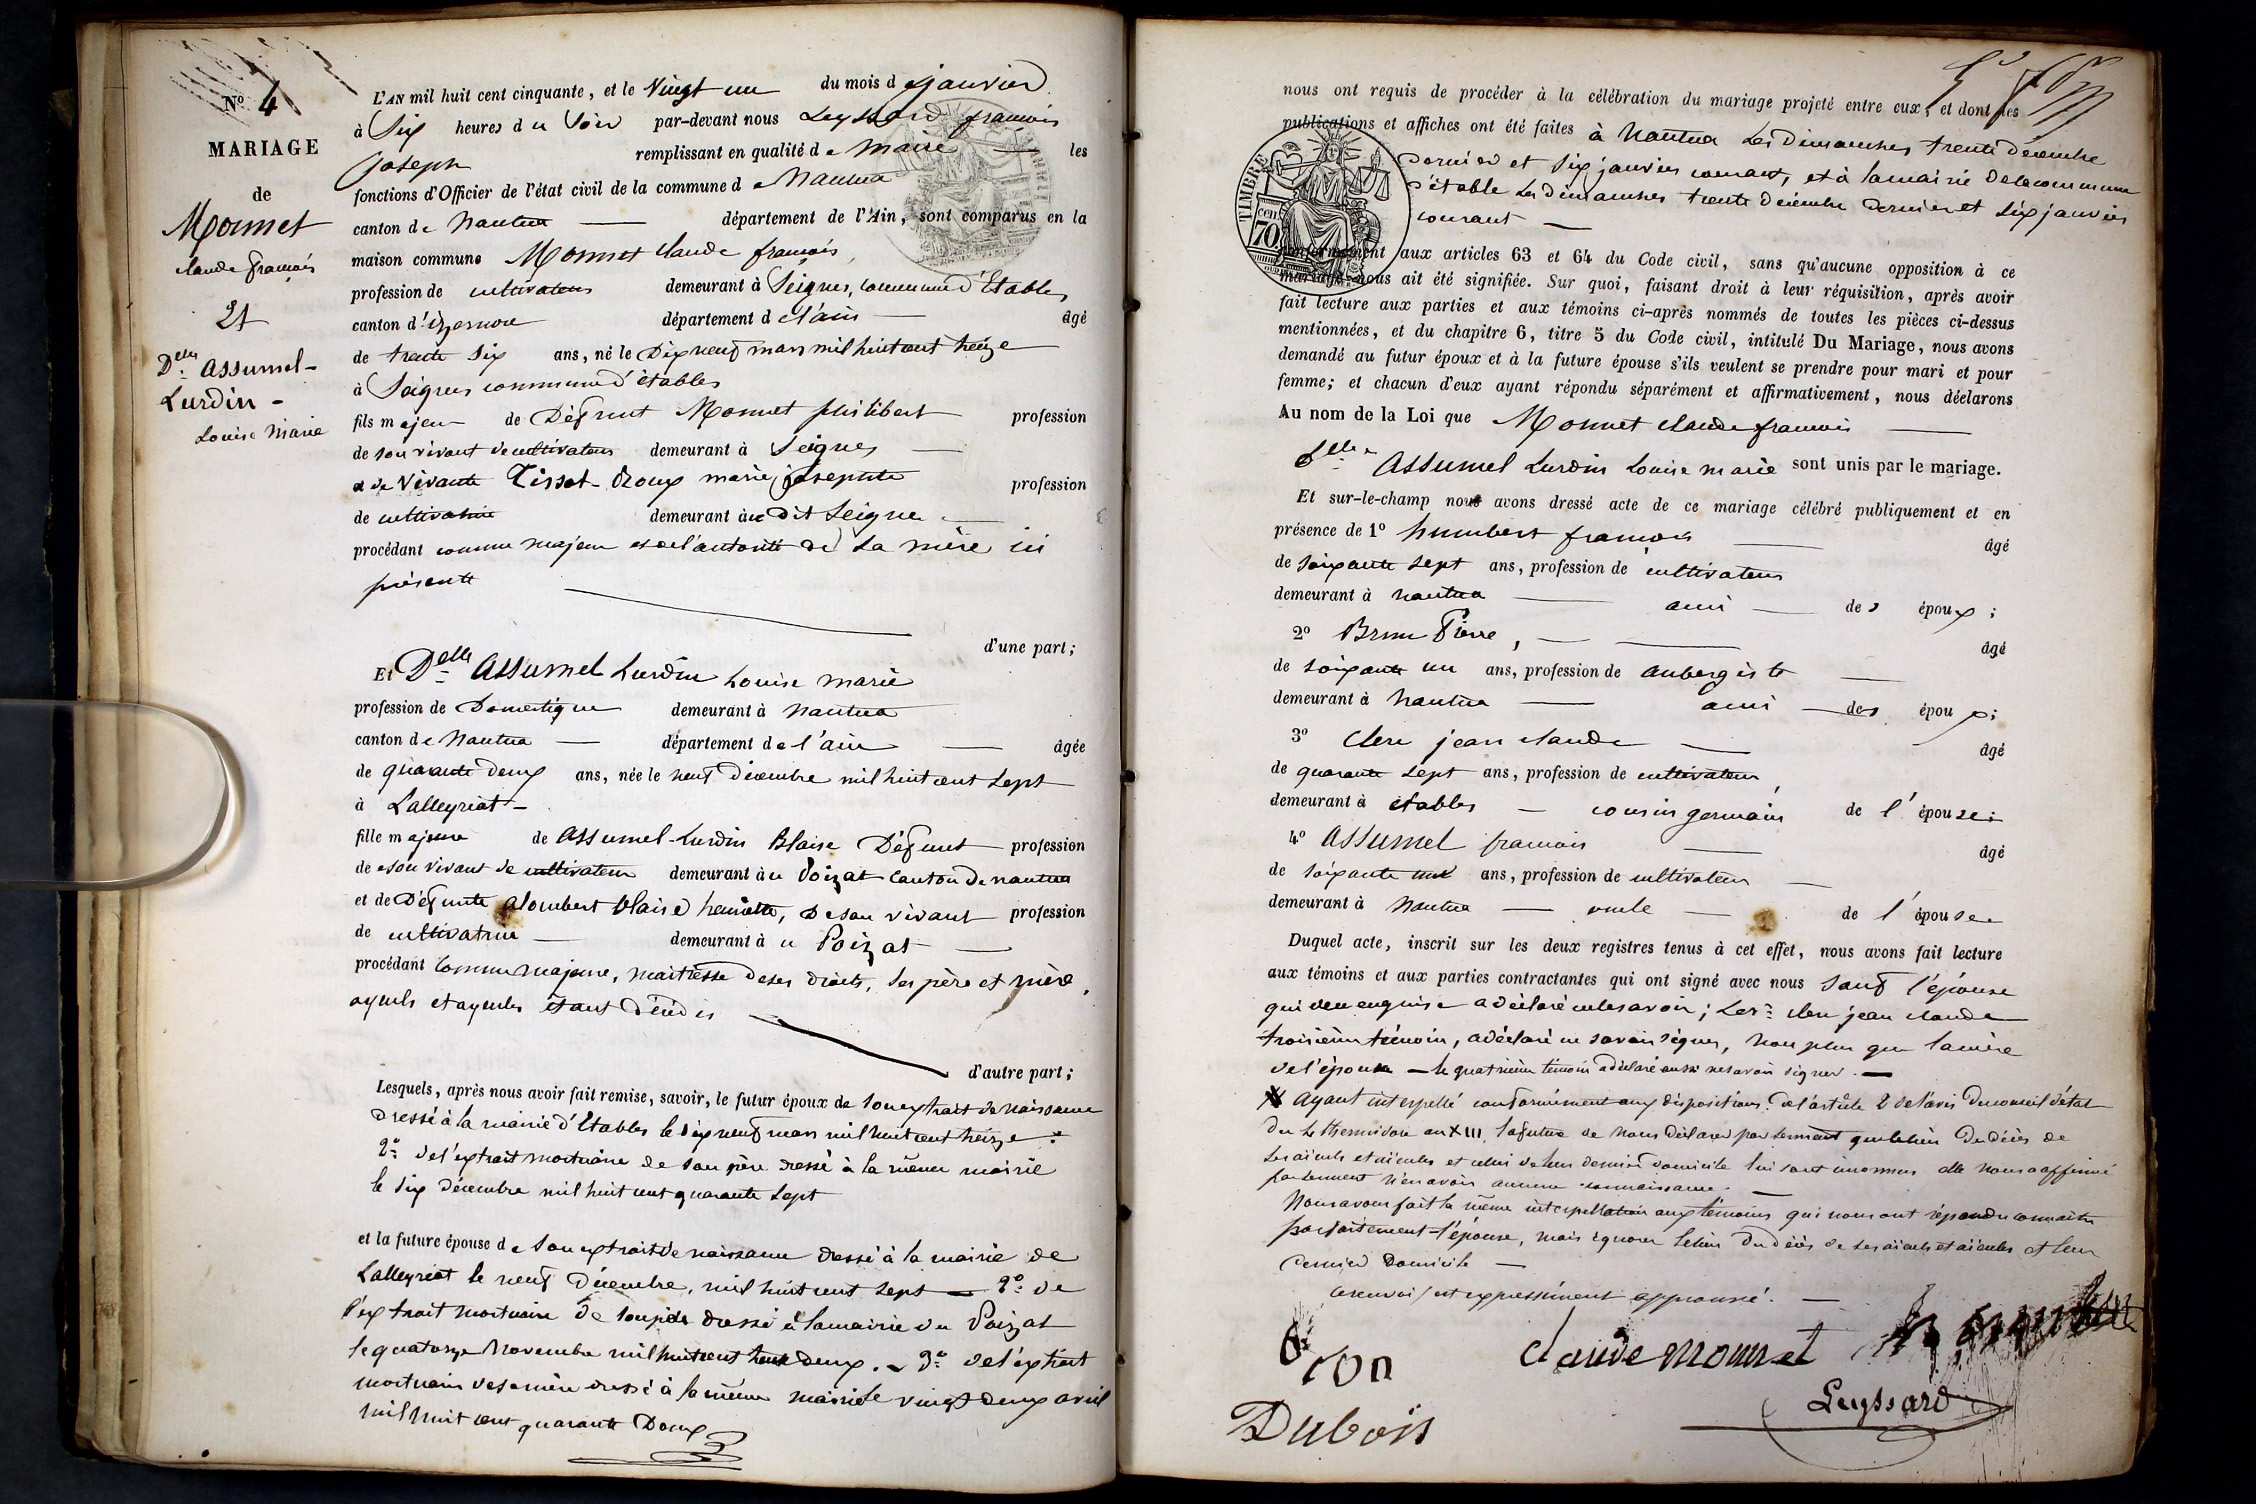 N° 4
MARIAGE
de
Monnet
Claude françois
et
Delle Assumel-
Lurdin -
Louise Marie
L'AN mil huit cent cinquante, et le Vingt un du mois de janvier
à Six heures du Soir par-devant nous Leyssard françois
joseph remplissant en qualité de Maire les
fonctions d'Officier de l'état civil de la commune de Nantua
canton de Nantua département de l'Ain, sont comparus en la
maison commune Monnet Claude françois,
profession de cultivateur demeurant à Seignes, commune d'Etables
canton d'izernore département de l'ain âgé
de trente Six ans, né le Dix neuf mars mil huit cent treize
à Seignes commune d'étables
fils majeur de Défunt Monnet philibert profession
de son vivant de cultivateur demeurant à Seignes
et de Vivante Tissot-Droux marie josephte profession
de cultivatrice demeurant au dit Seigne
procédant comme majeur et de l'autorité de sa mère ici
présente
d'une part;
Et Delle Assumel Lurdin Louise marie
profession de Domestique demeurant à Nantua
canton de Nantua département de l'ain âgée
de quarante deux ans, née le neuf Décembre mil huit cent Sept
à Lalleyriat -
fille majeure de Assumel-Lurdin Blaise Défunt profession
de son vivant de cultivateur demeurant au Poizat canton de nantua
et de Défunte alombert blaise henriette, De son vivant profession
de cultivatrice demeurant à u Poizat
procédant comme majeure, maitresse de ses droits, ses père et mère,
ayeuls et ayeules étant Décédés
d'autre part;
Lesquels, après nous avoir fait remise, savoir, le futur époux de son extrait de naissance
dressé à la mairie d'Etables le dix neuf mars mil huit cent treize.
2° de l'extrait mortuaire de son père dressé à la même mairie
le Six décembre mil huit cent quarante Sept
et la future épouse de son extrait de naissance dressé à la mairie de
Lalleyriat le neuf Décembre, mil huit cent Sept — 2° de
l'extrait mortuaire de son père dressé à la mairie du Poizat
le quatorze Novembre mil huit cent trente deux. 3° de l'extrait
mortuaire de sa mère dressé à la même mairie le vingt deux avril
mil huit cent quarante Deux
nous ont requis de procéder à la célébration du mariage projeté entre eux, et dont les
publications et affiches ont été faites à Nantua Les Dimanches trente décembre
Dernier et Six janvier courant, et à la mairie de la commune
d'étable Les dimanches trente décembre Dernier et Six janvier
courant
TIMBRE
70 cen
conformément aux articles 63 et 64 du Code civil, sans qu'aucune opposition à ce
mariage nous ait été signifiée. Sur quoi, faisant droit à leur réquisition, après avoir
fait lecture aux parties et aux témoins ci-après nommés de toutes les pièces ci-dessus
mentionnées, et du chapitre 6, titre 5 du Code civil, intitulé Du Mariage, nous avons
demandé au futur époux et à la future épouse s'ils veulent se prendre pour mari et pour
femme; et chacun d'eux ayant répondu séparément et affirmativement, nous déclarons
Au nom de la Loi que Monnet claude francois
Assumel Lurdin Louise marie sont unis par le mariage.
Et sur-le-champ nous avons dressé acte de ce mariage célébré publiquement et en
présence de 1° humbert françois âgé
de soixante sept ans, profession de cultivateur
demeurant à nantua ami des époux;
2° Brun Pierre, âgé
de soixante un ans, profession de aubergiste
demeurant à Nantua ami des époux;
3° Clerc jean claude âgé
de quarante sept ans, profession de cultivateur
demeurant à étables cousin germain de l'épouse;
4° Assumel francois âgé
de soixante ans, profession de cultivateur
demeurant à Nantua oncle de l'épouse
Duquel acte, inscrit sur les deux registres tenus à cet effet, nous avons fait lecture
aux témoins et aux parties contractantes qui ont signé avec nous Sauf l'épouse
qui de ce enquise a déclaré ne le savoir; Le sr clerc jean claude
troisième témoin, a déclaré ne savoir signer, Non plus que la mère
de l'époux — le quatrième témoin a déclaré aussi ne savoir signer. —
Ayant interpellé conformément aux dispositions de l'article 2 de l'avis du conseil d'état
du 4 thermidor an XIII, la future de nous déclarer par serment que le lieu du décès de
ses aïeuls et aïeules et celui de leur dernier domicile lui sont inconnus elle nous a affirmé
par serment n'en avoir aucune connaissance. —
Nous avons fait la même interpellation aux témoins qui nous ont répondu connaitre
parfaitement l'épouse, mais ignorer le lieu du décès de ses aïeuls et aïeules et leur
dernier domicile —
ce renvoi est expressément approuvé. —
claude monnet
Leyssard
Dubois